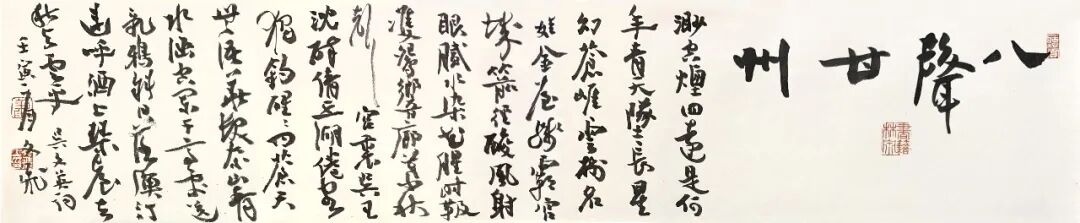 八聲甘州
渺空煙四遠是何
年青天墜長星
幻蒼崖雲樹名
娃金屋殘霸宮
城箭徑酸風射
眼膩水染花腥時靸
雙鴛響廊葉秋
聲 宮裏吳王
沈醉倩五湖倦客
獨釣醒醒問蒼天
無語華髮奈山青
水涵空闌干高處送
亂鴉斜日落漁汀
連呼酒上琴臺去
秋與雲平 吳文英詞
壬寅二月